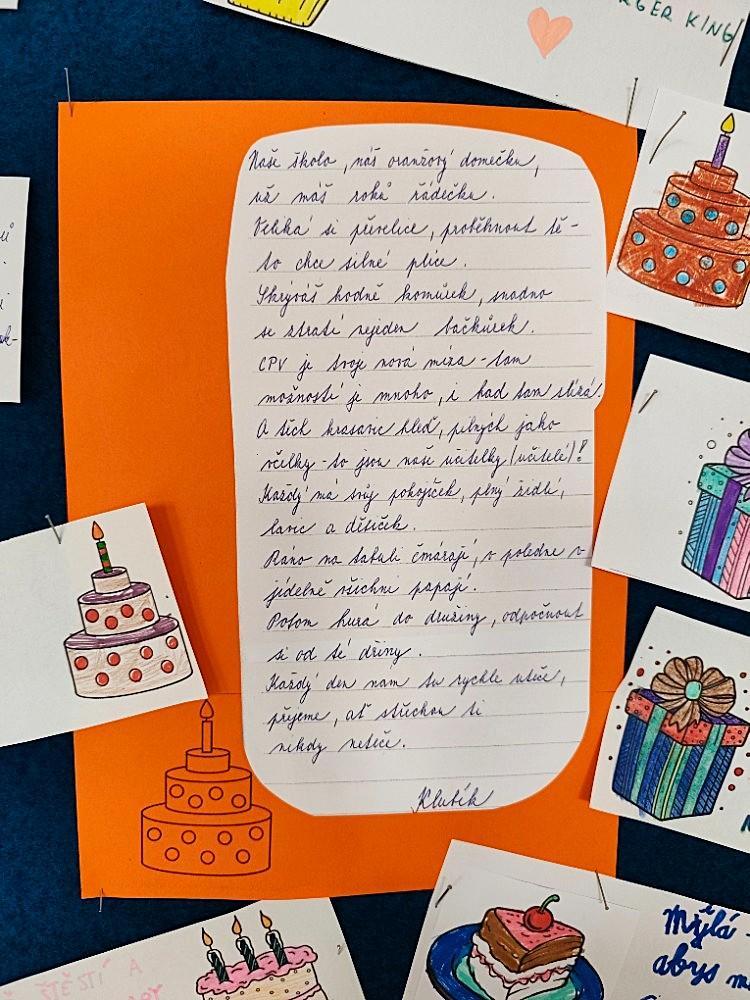 RGER KING
Naše školo, náš oranžový domečku,
už máš roků řádečku.
Veliká si převelice, proběhnout tě -
to chce silné plíce.
Skrýváš hodně komůrek, snadno
se ztratí nejeden bačkůrek.
CPV je tvoje nová míza - tam
možností je mnoho, i had tam slízá!
A těch krasavic hleď, pilných jako
včelky - to jsou naše učitelky (učitelé)!
Každý má svůj pokojíček, plný židlí,
lavic a dětiček.
Ráno na tabuli čmárají, v poledne v
jídelně všichni papají.
Potom hurá do družiny, odpočinout
si od té dřiny.
Každý den nam tu rychle uteče,
přejeme, ať střechou ti
nikdy neteče.
Klubík
Mylá -
abys
A
ŠTĚSTÍ